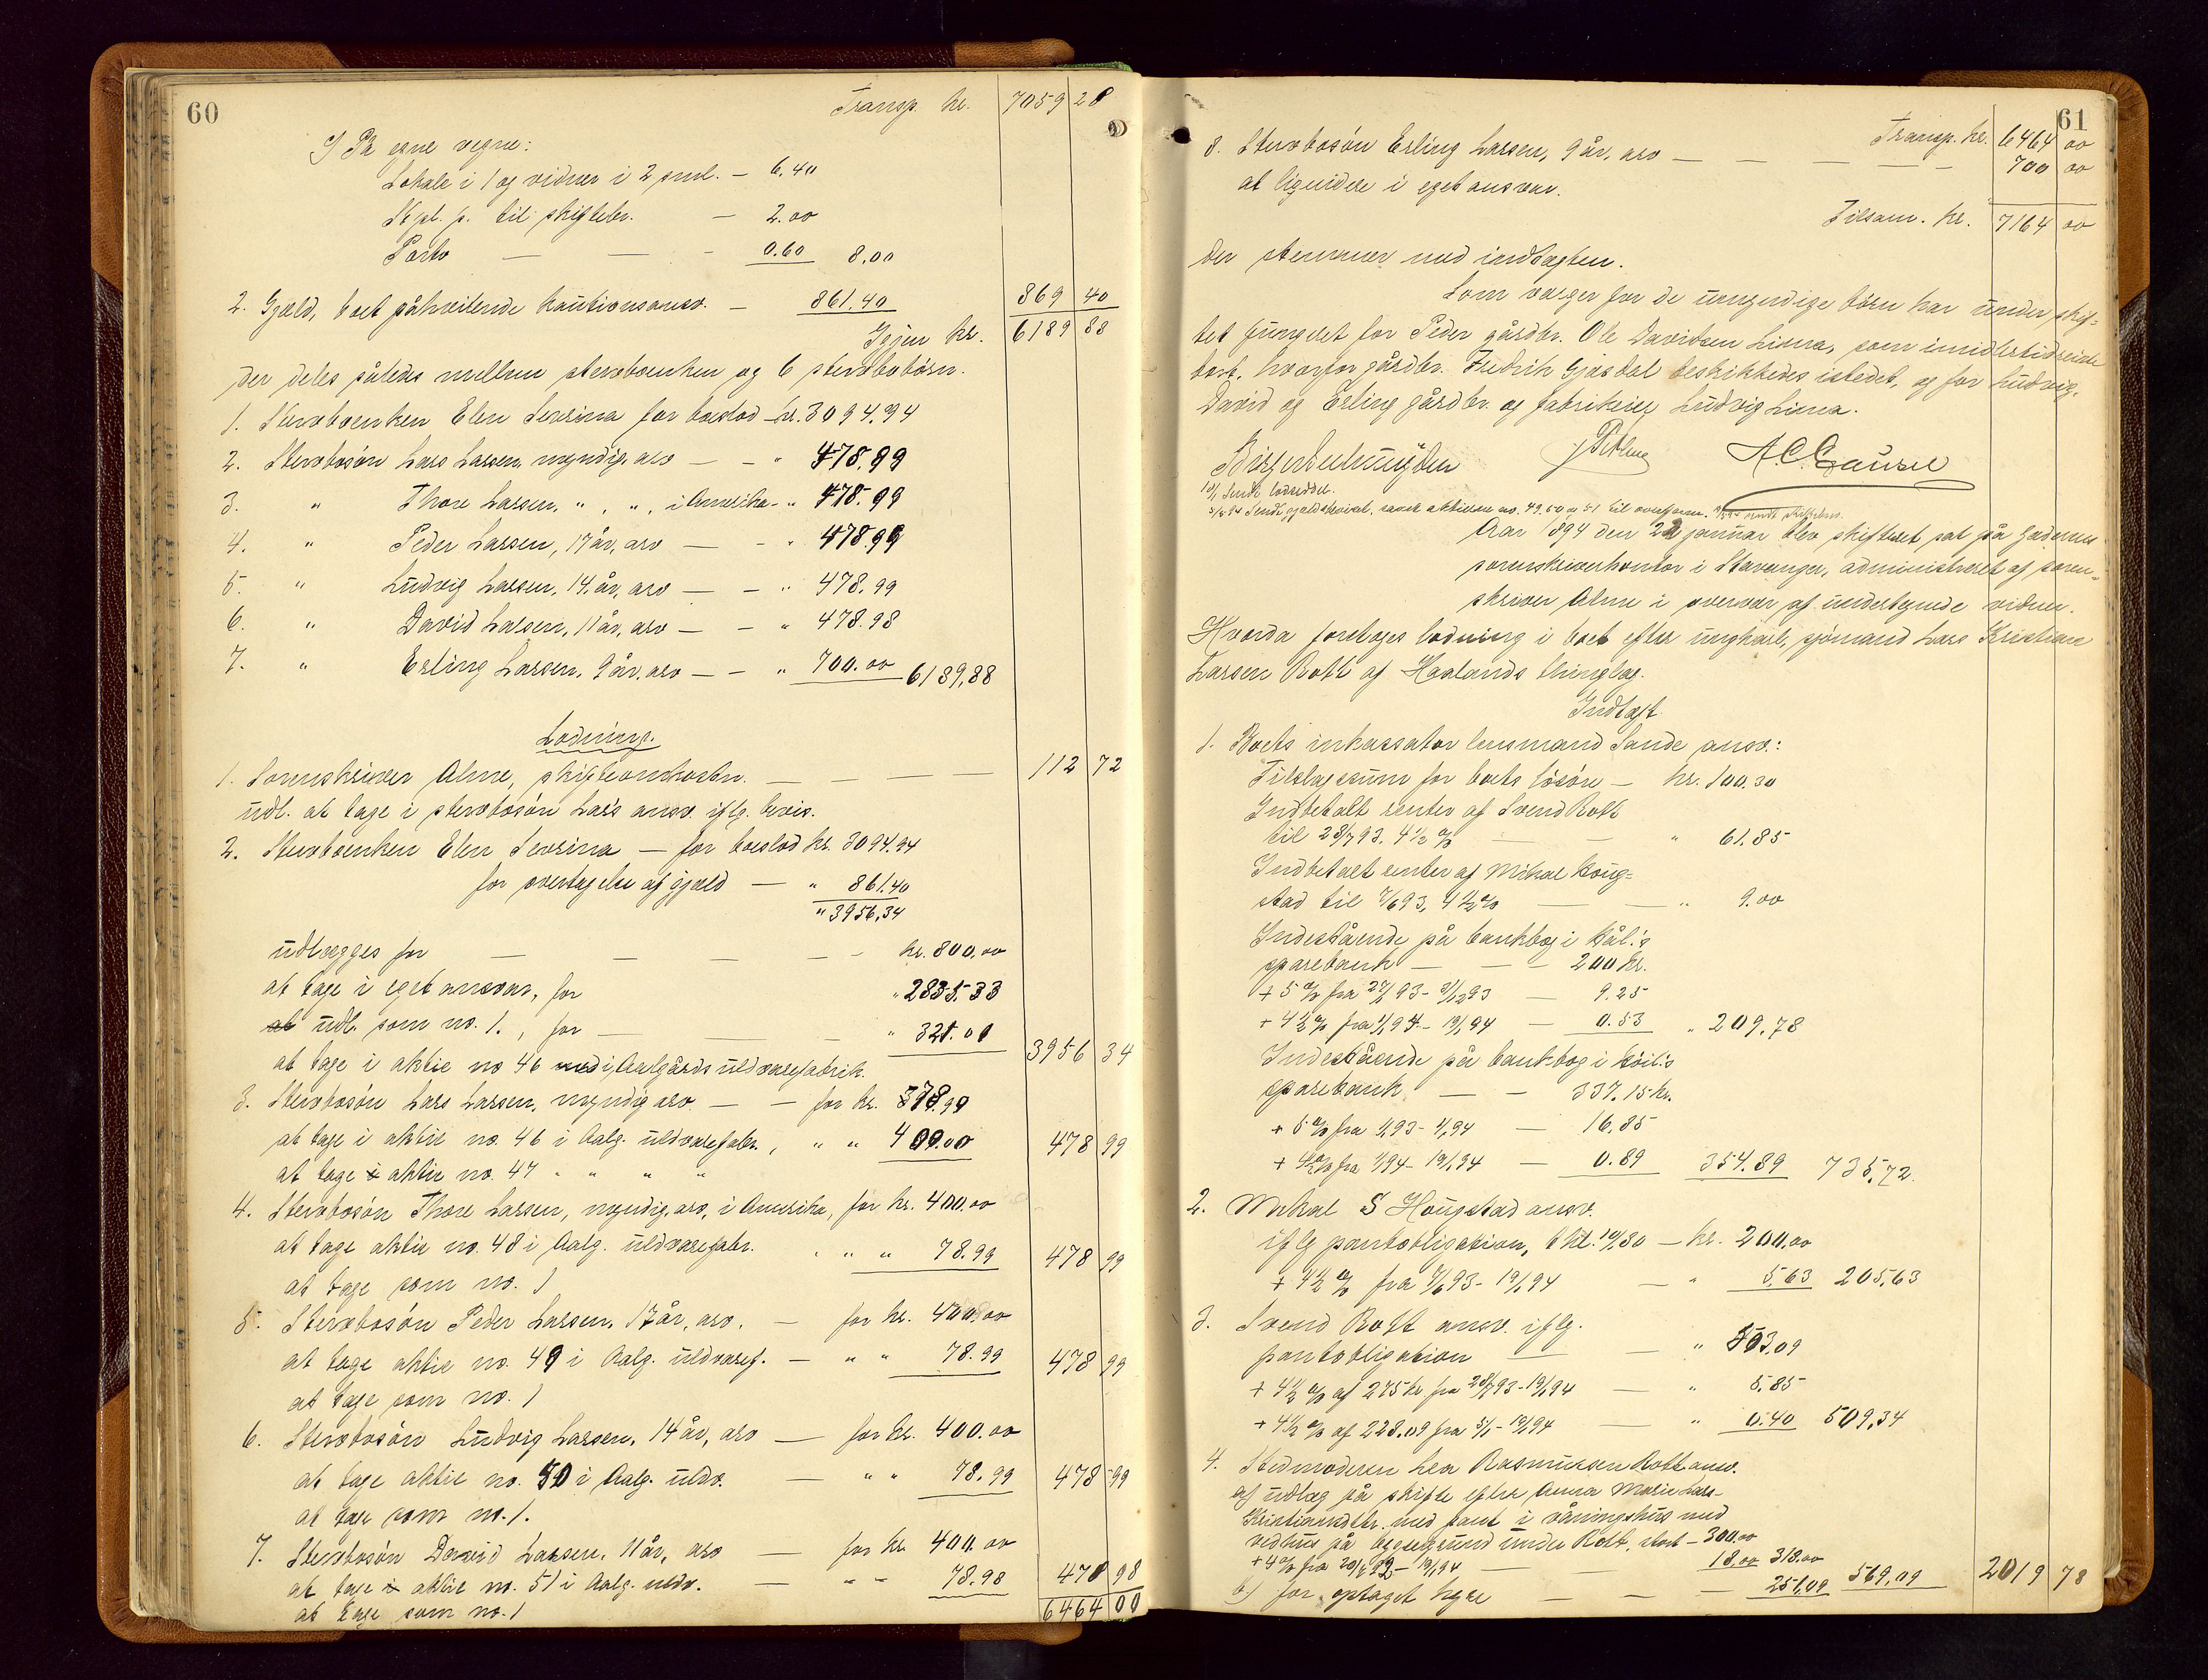 60
Transp. kr. 7059 28
På egne vegne:
Lokale i 1 og vidner i 2 sml. — 6.40
Stpl. p. til skiftebr. — 2.00
Porto — — - 0.60 8.00
2. Gjæld, boet påhvilende kautionsansv. — 861.40 869 40
Igjen kr. 6189 88
der deles således mellem stervboenken og 6 sterbobörn.
1. Stervboenken Elen Severina for boeslod - kr. 3094.94
2. Stervbosön Lars Larsen, myndig, arv — - " 478.99
3. " Thore Larsen, " , " , i Amerika - " 478.99
4. " Peder Larsen, 17 år, arv — - " 478.99
5. " Ludvig Larsen, 14 år, arv — - " 478.99
6. " David Larsen, 11 år, arv — - " 478.98
7. " Erling Larsen, 9 år, arv — - " 700.00 6189.88
Lodning.
1. Sorenskriver Alme, skifteomkostn. — — — — 112 72
udl. at tage i stervbosön Lars's ansv. iflg. bevis.
2. Stervboenken Elen Severina — for boeslod kr. 3094.94
for overtagelse af gjæld — " 861.40
" 3956.34
udlægges for — — — — kr. 800.00
at tage i eget ansvar, for " 2835.33
at udl. som no. 1., for — " 321.01
3956 34
at tage i aktie no 46 i Aalgårds uldvarefabrik.
3. Stervbosön Lars Larsen, myndig arv — — for kr. 378.99
at tage i aktie no. 46 i Aalg. uldvarefabr., " " 100.00 478 99
at tage i aktie no. 47 " " " "
4. Stervbosön Thore Larsen, myndig, arv, i Amerika, for kr. 400.00
at tage aktie no. 48 i Aalg. uldvarefabr. " " 78.99 478 99
at tage som no. 1
5. Stervbosön Peder Larsen, 17 år, arv. — for kr. 400.00
at tage aktie no. 49 i Aalg. uldvaref. — " " 78.99 478 99
at tage som no. 1
6. Stervbosön Ludvig Larsen, 14 år, arv — for kr. 400.00
at tage aktie no. 50 i Aalg. uldv. — " " 78.99 478 99
at tage som no. 1.
7. Stervbosön David Larsen, 11 år, arv — for kr 400.00
at tage i aktie no. 51 i Aalg. uldv. — " " 78.98 478 98
at tage som no. 1 6464 00
61
Transp. kr. 6464 00
8. Stervbosön Erling Larsen, 9 år, arv — — — — 700 00
at liquidere i eget ansvar.
Tilsam. kr. 7164 00
der stemmer med indtægten.
Som værger for de umyndige börn har under skif-
tet fungeret for Peder gårdbr. Ole Davidsen Lima, som imidlertid reiste
bort, hvorfor gårdbr. Fredrik Gjesdal beskikkedes istedet, og for Ludvig,
David og Erling gårdbr. og fabrikeier Ludvig Lima.
A. C. Gausel
Aar 1894 den 22 januar blev skifteret sat på Jæderens
sorenskriverkontor i Stavanger, administreret af soren-
skriver Alme i overvær af undertegnede vidner.
Hvorda foretoges lodning i boet efter ungkarl, sjömand Lars Kristian
Larsen Rott af Haalands thinglag.
Indtægt
1. Boets inkassator lensmand Sande ansv.:
Tilslagssum for boets lösöre — kr. 100.30
Indbetalt renter af Svend Rott
til 28/7 93. 4½ % — — " 61.85
Indbetalt renter af Mikal Houg-
stad til 7/6 93, 4½ % — — " 9.00
Indestående på bankbog i Hål.'s
sparebank — — — 200 kr.
+ 5 % fra 27/1 93 - 31/12 93 — 9.25
+ 4½ % fra 1/1 94 - 19/1 94 — 0.53 " 209.78
Indestående på bankbog i Höil.'s
sparebank — — 337.15 kr.
+ 5 % fra 1/1 93 - 1/1 94 — 16.85
+ 4½ % fra 1/1 94 - 19/1 94 — 0.89 354.89 735.72
2. Mikal S Hougstad ansv.
iflg pantobligation, thl. 19/ 80 — kr. 200.00
+ 4½ % fra 7/6 93 - 19/1 94 — " 5.63 205.63
3. Svend Rott ansv. iflg.
pantobligation — — " 503.09
+ 4½ % af 275 kr. fra 28/7 93 - 19/1 94 — " 5.85
+ 4½ % af 228.09 fra 5/1 - 19/1 94 — " 0.40 509.34
4. Stedmoderen Lea Rasmussen Rott ansv.
af udlæg på skifte efter Anna Marie Lars-
Kristiansdtr. med pant i våningshus med
vedhus på byggegrund under Rott, stort — 300.00
+ 4 % fra 20/7 92 - 19/1 94 — — 18.00 318.00
b) for optaget hyre — — — 251.09 569.09 2019 78